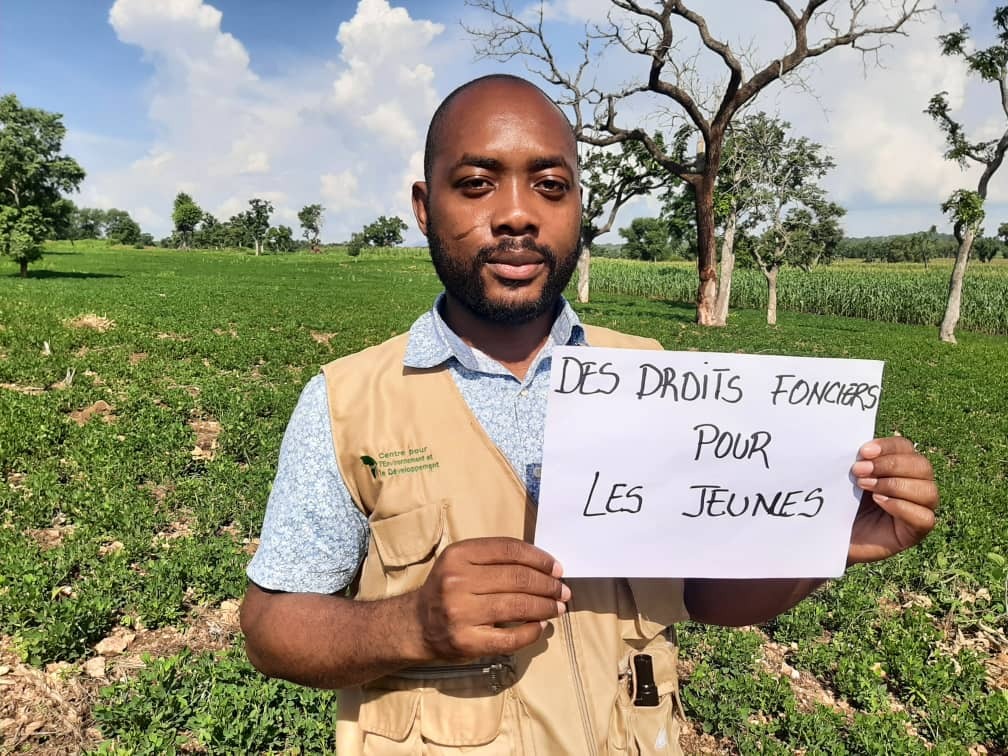 DES DROITS FONCIERS
POUR
LES JEUNES
Centre pour
l'Environnement et
le Développement